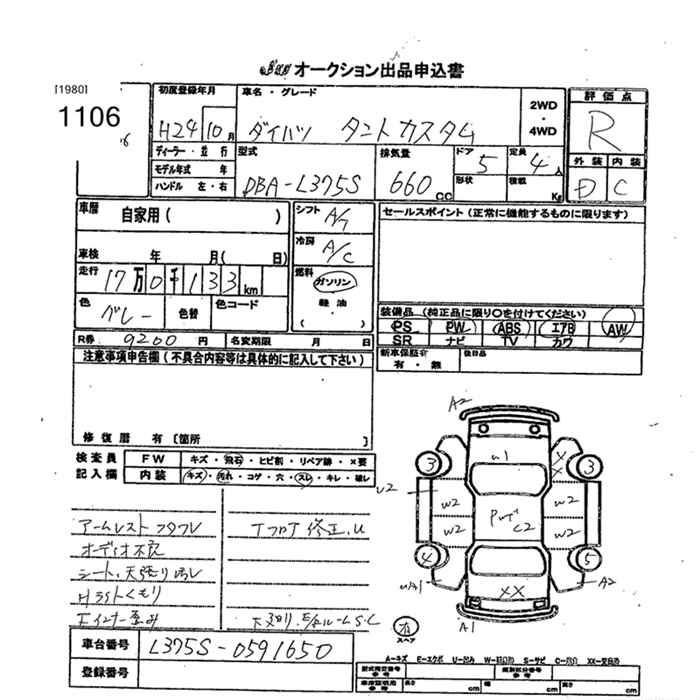 オークション出品申込書
[1980]
1106
初度登録年月
車名・グレード
H24 10月
ダイハツ タントカスタム
2WD
・
4WD
評価点
R
ディーラー・並行
モデル年式 年
ハンドル 左・右
型式
DBA-L375S
排気量
660 CC
ドア 5
形状
定員 4人
積載 Kg
外装 内装
D C
車歴 自家用( )
シフト A/T
セールスポイント(正常に機能するものに限ります)
車検 年 月( 日)
冷房 A/C
走行 17万0千133km
燃料 ガソリン
軽油
( )
色 グレー 色替 色コード
装備品(純正品に限り○を付けてください)
PS PW ABS エアB AW
SR ナビ TV カワ
R券 9200円 名変期限 月 日
新車保証書
有・無
後日品
注意事項申告欄(不具合内容等は具体的に記入して下さい)
修復歴 有〔箇所 〕
検査員
記入欄
FW キズ・飛石・ヒビ割・リペア跡・×要
内装 キズ・汚れ・コゲ・穴・スレ・キレ・破レ
アームレスト
オーディオ不良
シート、天張り汚レ
Hライトくもり
Fインナー歪み
修正
A2
U1
XX
3
3
U2
W2
W2
W2
W2
C2
4
5
A2
XX
A1
スペア
車台番号 L375S-0591650
登録番号
A-キズ E-エクボ U-凹み W-S-サビ C-XX-交換済
型式指定番号
参考
類別区分番号
参考
長さ cm cm cm